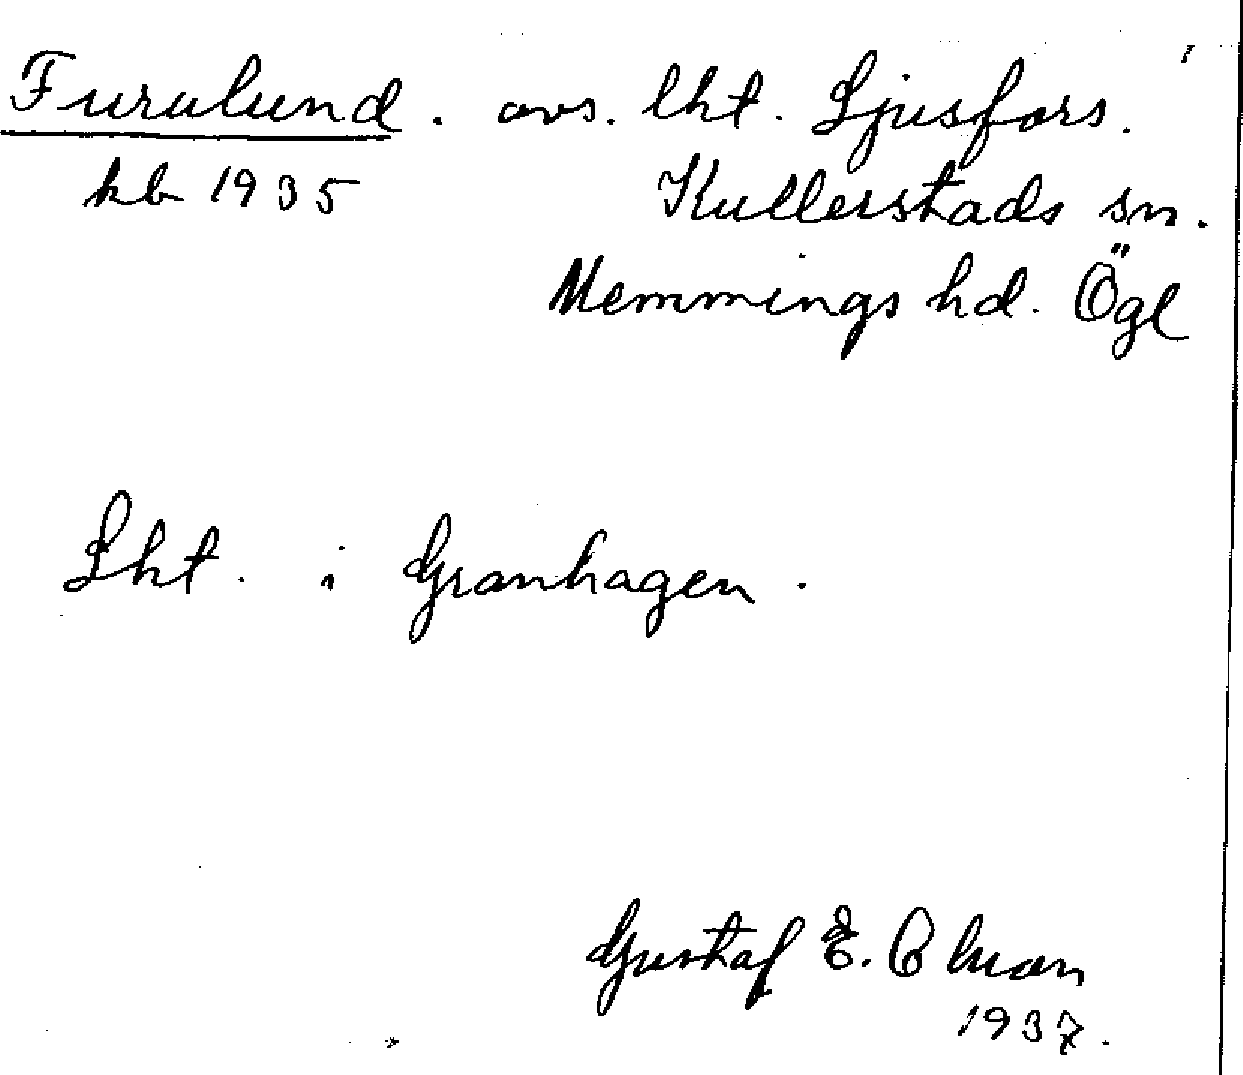 Furulund. avs. lht. Ljusfors.
kb 1935 Kullerstads sn.
Memmings hd. Ögl
Lht. i Granhagen.
Gustaf E.
1937.